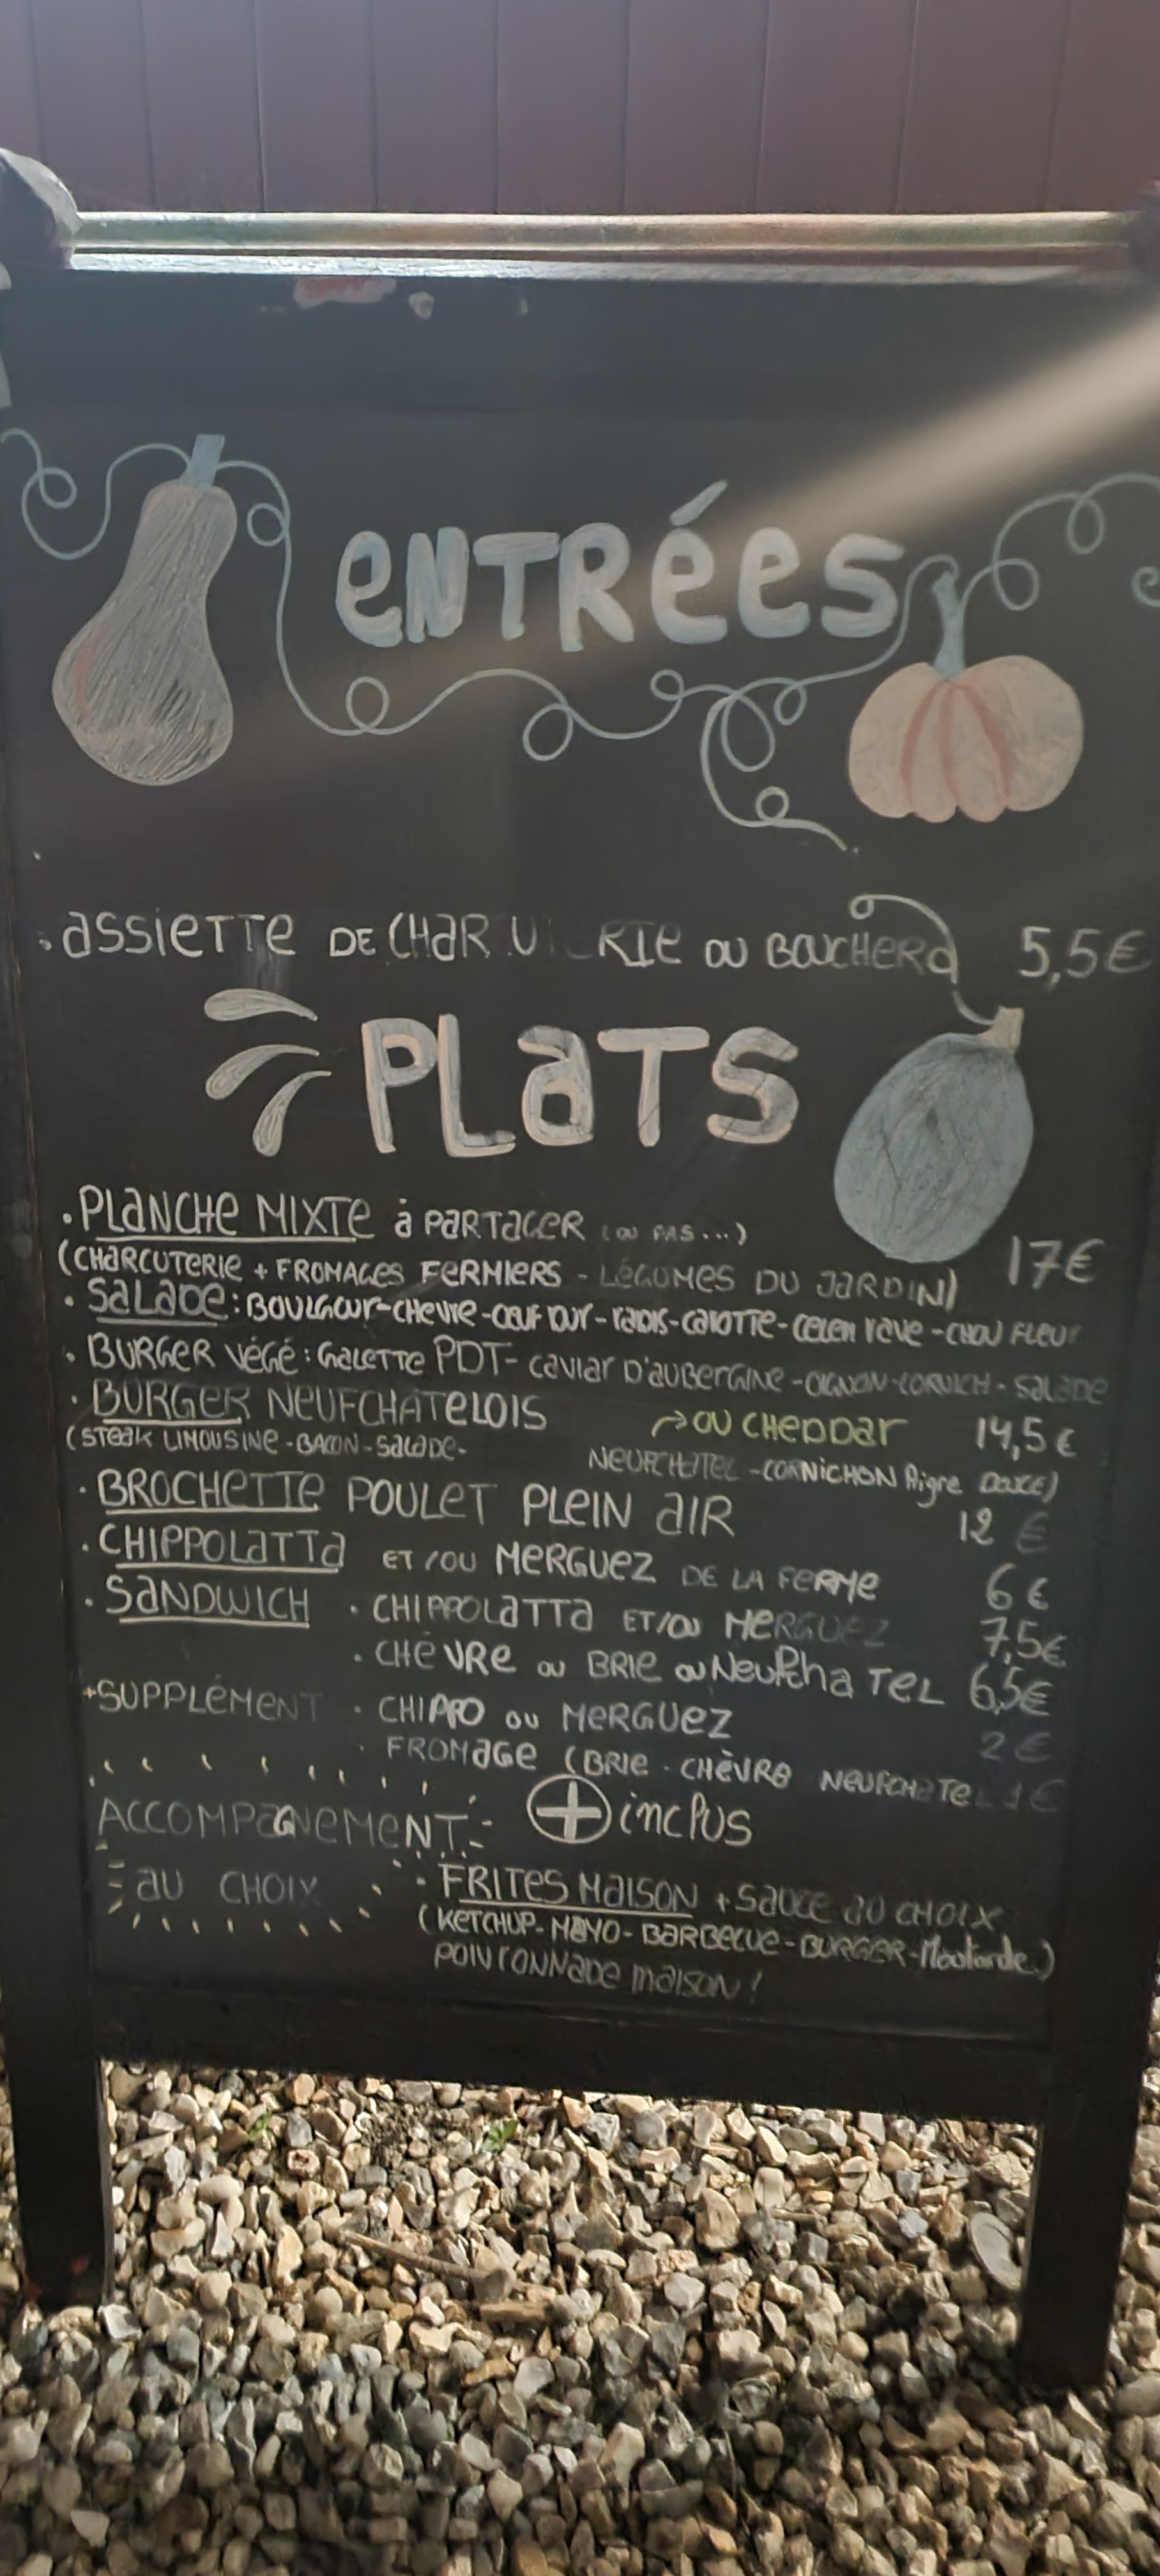 entrées
. assiette de charcuterie ou bouchera 5,5€
PLATS
. PLANCHE MIXTE à PARTAGER (ou PAS...)
(CHARCUTERIE + FROMAGES FERMIERS - LÉGUMES DU JARDIN) 17€
. SALADE : BOULGOUR-CHEVRE-OEUF DUR-radis-carotte-celeri rave-CHOU FLEUR
. BURGER VÉGÉ : Galette PDT- caviar D'AUBERGINE -OIGNON-CORNICH-SALADE
. BURGER NEUFCHATELOIS → OU CHEDDAR 14,5€
(STEAK LIMOUSINE-BACON-SALADE- NEUFCHATEL-CORNICHON Aigre DOUCE)
. BROCHETTE POULET PLEIN AIR 12 €
. CHIPPOLATTA ET/OU MERGUEZ DE LA FERME 6€
. SANDWICH . CHIPPOLATTA ET/OU MERGUEZ 7,5€
. CHÈVRE ou BRIE ou Neufchatel 6,5€
+SUPPLÉMENT . CHIPPO ou MERGUEZ 2€
. FROMAGE (BRIE - CHÈVRE NEUFCHATEL 1€
ACCOMPAGNEMENT + inclus
AU CHOIX . FRITES MAISON + SAUCE AU CHOIX
(KETCHUP-MAYO-BARBECUE-BURGER-Moutarde)
POIVRONNADE MAISON !